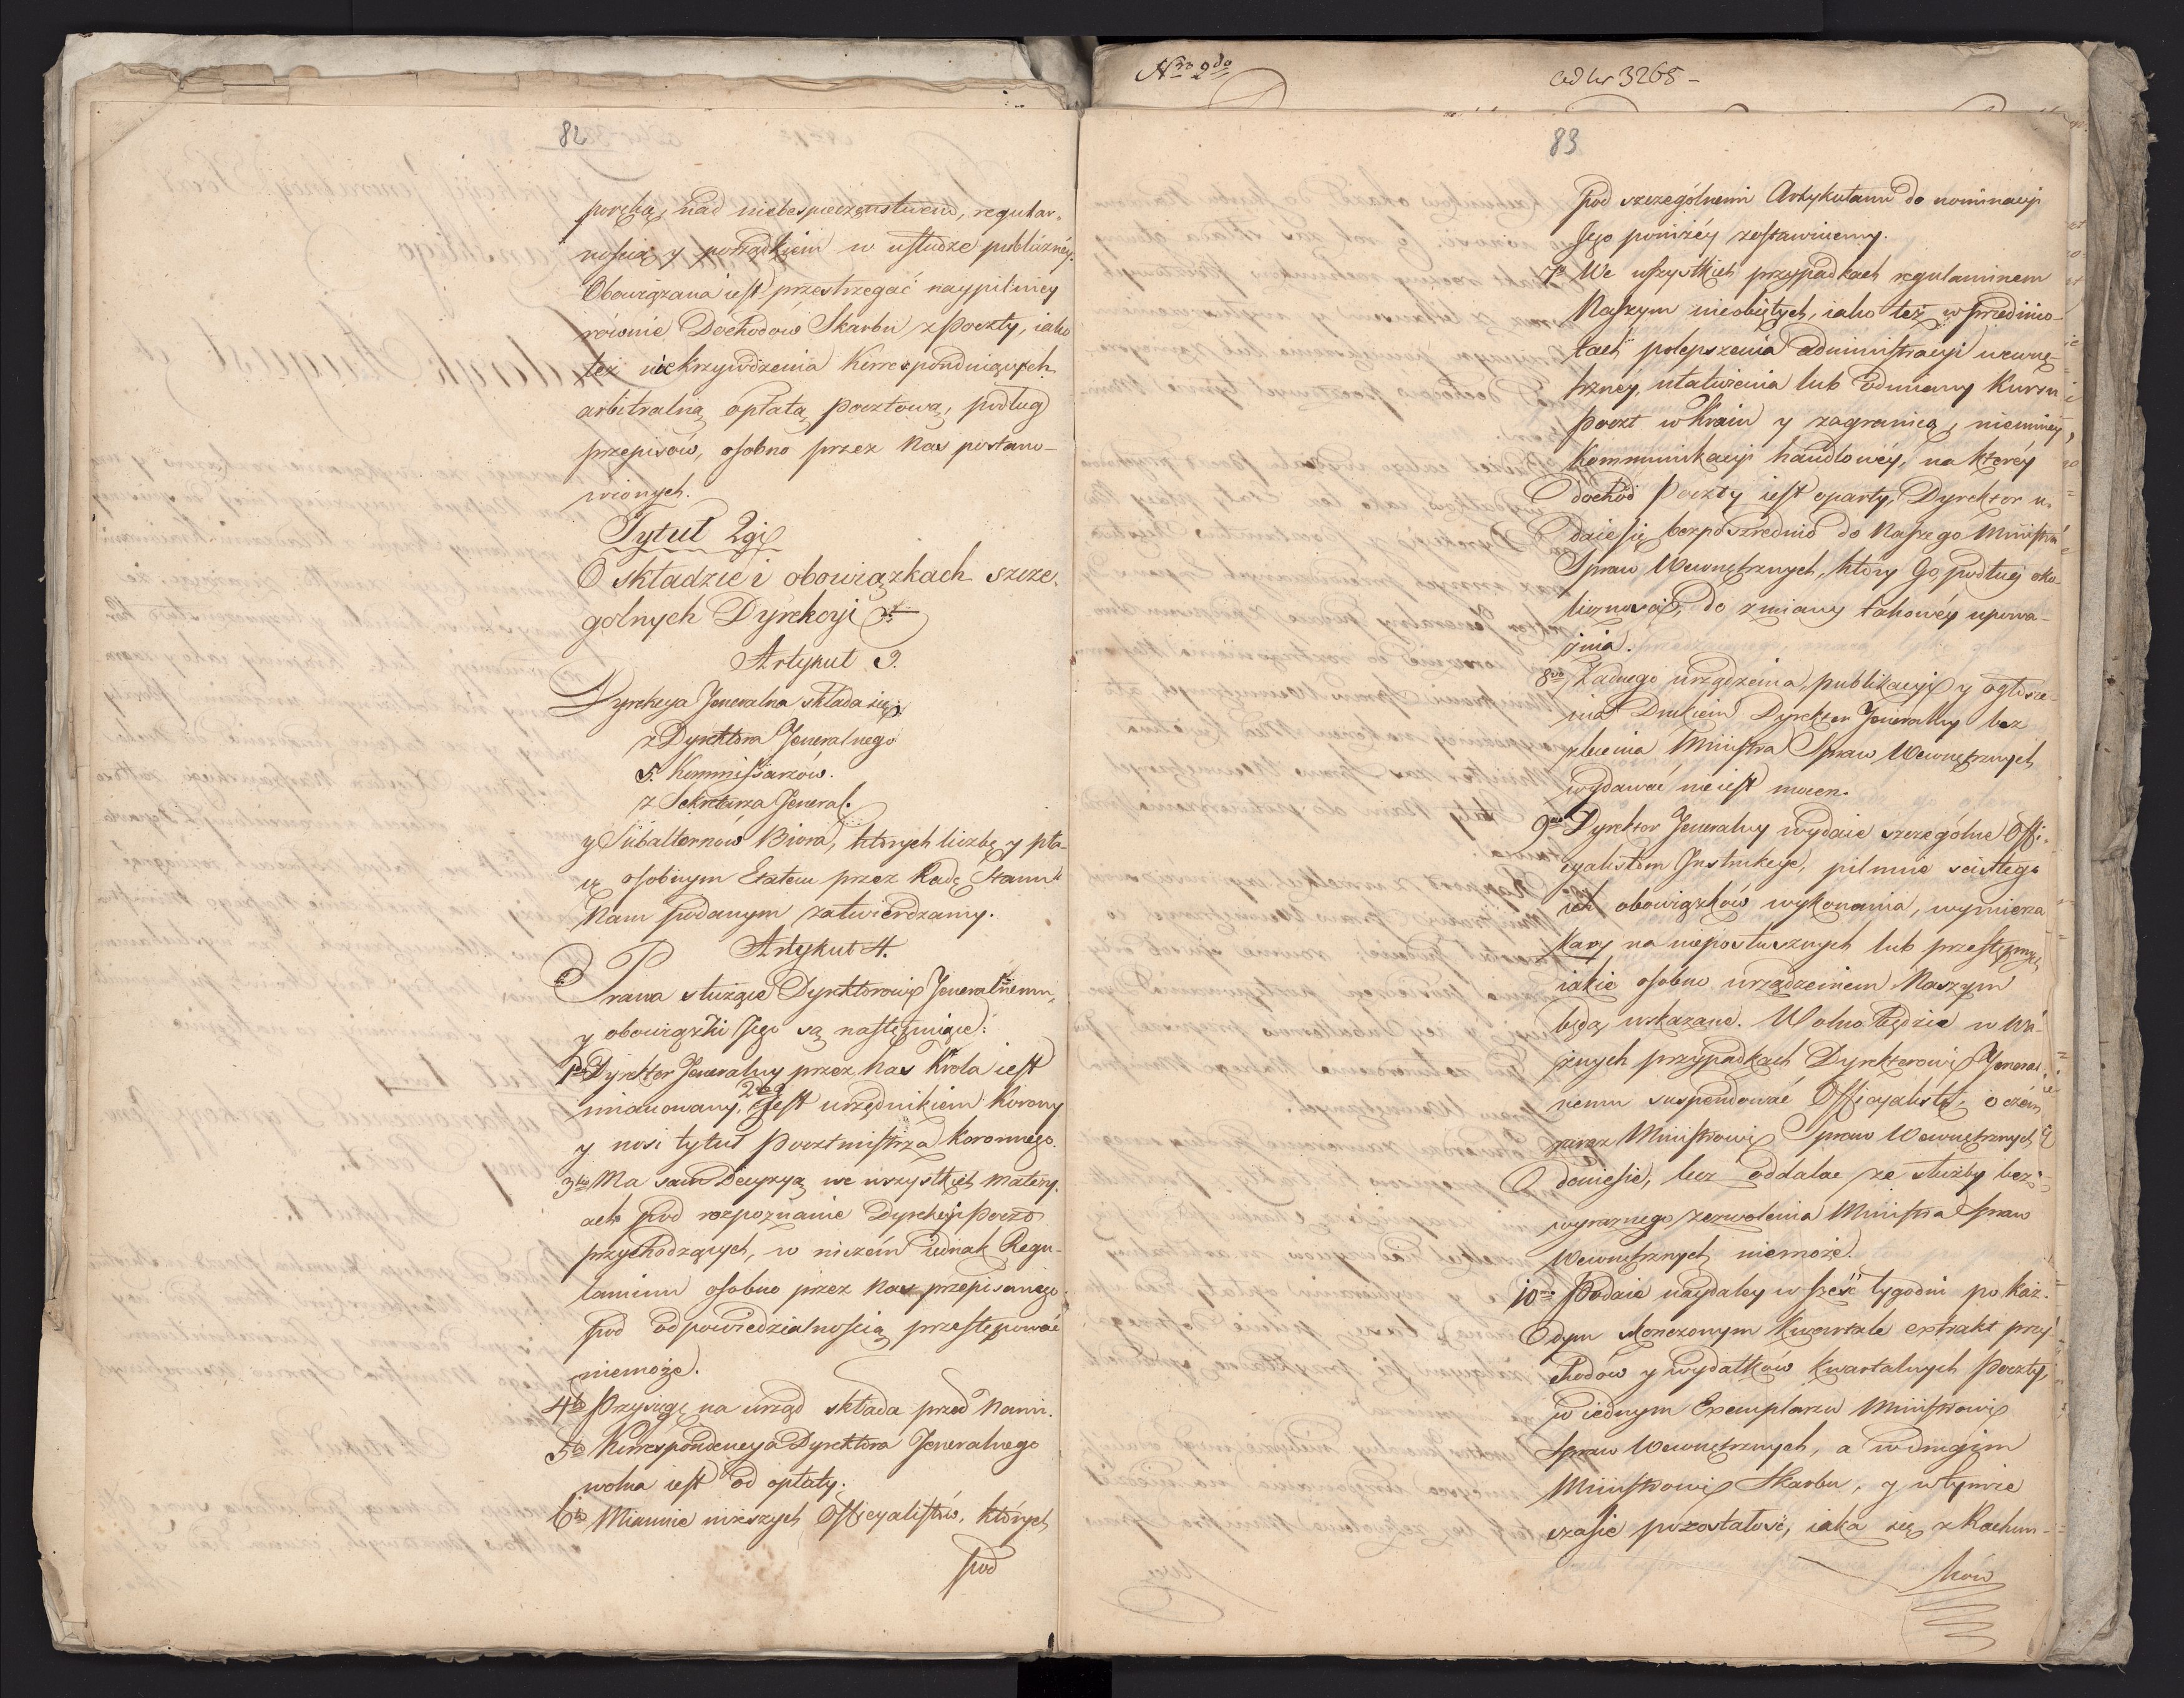 82
poręką, nad niebespieczeństwem, regular„
nością y porządkiem w usłudze publiczney.
Obowiązana iest przestrzegać naypilniey
równie Dochodów Skarbu z Poczty, iako
też niekrzywdzenia Korrespnduiących
arbitralną opłatą pocztową, podług
przepisów, osobno przez Nas postano-
wionych.
Tytuł 2gi
O składzie i obowiązkach szcze,
golnych Dyrekcyi
Artykuł 3.
Dyrekcya Jeneralna składa się:
z Dyrektora Jeneralnego
5. Kommissarzów.
z Sekretarza Jeneral.
y Subalternów Biora, których liczbę y pła-
cę osobnym Etatem przez Radę Stanu
Nam podanym zatwierdzamy.
Artykuł 4.
Prawa służące Dyrektorowi Jeneralnemu,
y obowiązki Jego są następuiące:
1o Dyrektor Jeneralny przez Nas Króla iest
mianowany. 2do Jest urzędnikiem Korony
y nosi tytuł Pocztmistrza Koronnego.
3tio Ma sam Decyzyą we wszystkich matery„
ach pod rozpoznanie Dyrekcyi Poczt
przychodzących, w niczém iednak Regu-
laminu osobno przez Nas przepisanego
pod odpowiedzialnością przestępować
niemoże.
4to Przysięgę na urząd składa przed Nami.
5to Korrespondencya Dyrektora Jeneralnego
wolna iest od opłaty.
6to Mianuie niższych Officyalistów, których
pod
Nro 2do
ad Nr 3265 -
83
Pod szczególnemi Artykułami do nominacyi
Jego poniżéy zostawiuemy.
7o We wszystkich przypadkach regulaminem
Naszym nieobiętych, iako też w przedmio-
tach polepszenia administracyi wewnę-
trznéy, ułatwienia lub odmiany Kursu
Poczt w Kraiu y zagranicą, niemniéy
Kommunikacyi handlowéy, na któréy
dochód Poczty iest oparty, Dyrektor u-
daie się bezpośrednio do Naszego Ministra
Spraw Wewnętrznych, który Go podług oko-
liczności, do zmiany takowéy upowa-
żnia.
8vo Żadnego urządzenia, publikacyi y ogłosze-
nia Drukiem Dyrektor Jeneralny bez
zlecenia Ministra Spraw Wewnętrznych
wydawać nie iest mocen.
9no Dyrektor Jeneralny wydaie szczególne Offi-
cyalistom Instrukcye, pilnuie scisłego
ich obowiązków wykonania, wymierza
Kary na nieposłusznych lub przestępnych,
iakie osobno urządzeniem Naszym
będą wskazane. Wolno będzie w wa-
żnych przypadkach Dyrektorowi Jeneral-
nemu suspendować Officyalistę, o czém
zaraz Ministrowi Spraw Wewnętrznych
doniesie, lecz oddalać ze służby bez
wyraznego zezwolenia Ministra Spraw
Wewnętrznych niemoże.
10mo Podaie naydaléy w sześć tygodni po każ-
dym skończonym Kwartale extrakt przy
chodów y wydatków kwartalnych Poczty,
w iednym Exemplarzu Ministrowi
Spraw Wewnętrznych, a w drugim
Ministrowi Skarbu, y w tymże
czasie pozostałość, iaka się z Rachun-
ków